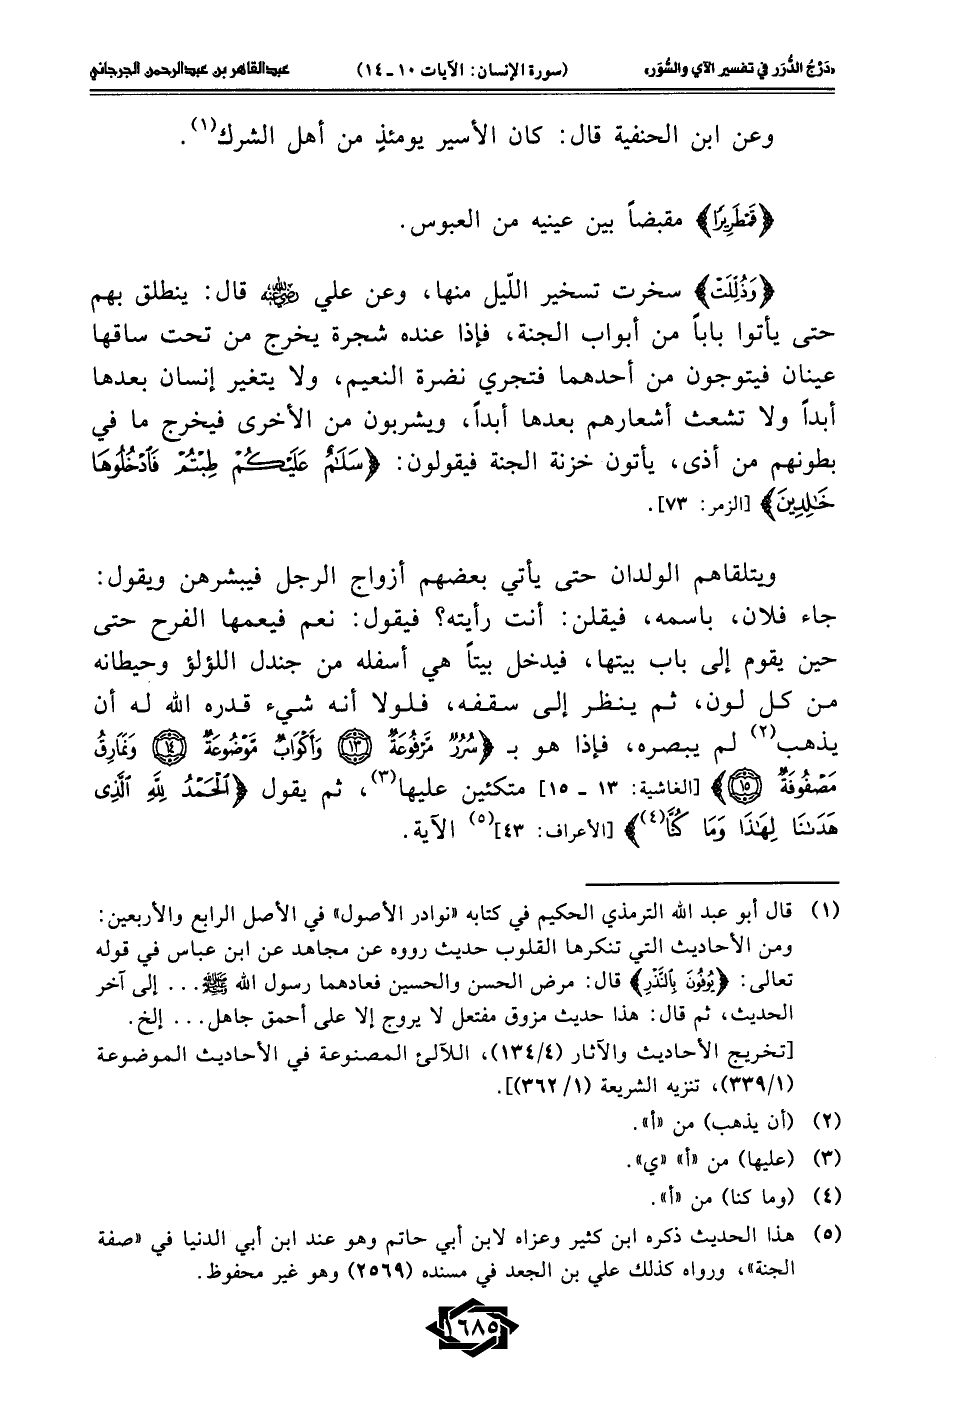 «دَرْجُ الدُّرَر في تفسير الآي والسُّوَر» (سورة الإنسان: الآيات ١٠ ـ ١٤) عبدالقاهر بن عبدالرحمن الجرجاني
وعن ابن الحنفية قال: كان الأسير يومئذٍ من أهل الشرك(١).
﴿قَمْطَرِيرًا﴾ مقبضاً بين عينيه من العبوس.
﴿وَذُلِّلَتْ﴾ سخرت تسخير اللّيل منها، وعن علي رضي الله عنه قال: ينطلق بهم
حتى يأتوا باباً من أبواب الجنة، فإذا عنده شجرة يخرج من تحت ساقها
عينان فيتوجون من أحدهما فتجري نضرة النعيم، ولا يتغير إنسان بعدها
أبداً ولا تشعث أشعارهم بعدها أبداً، ويشربون من الأخرى فيخرج ما في
بطونهم من أذى، يأتون خزنة الجنة فيقولون: ﴿سَلَٰمٌ عَلَيْكُمْ طِبْتُمْ فَٱدْخُلُوهَا
خَٰلِدِينَ﴾ [الزمر: ٧٣].
ويتلقاهم الولدان حتى يأتي بعضهم أزواج الرجل فيبشرهن ويقول:
جاء فلان، باسمه، فيقلن: أنت رأيته؟ فيقول: نعم فيعمها الفرح حتى
حين يقوم إلى باب بيتها، فيدخل بيتاً هي أسفله من جندل اللؤلؤ وحيطانه
من كل لون، ثم ينظر إلى سقفه، فلولا أنه شيء قدره الله له أن
يذهب(٢) لم يبصره، فإذا هو بـ ﴿سُرُرٌ مَّرْفُوعَةٌ ١٣ وَأَكْوَابٌ مَّوْضُوعَةٌ ١٤ وَنَمَارِقُ
مَصْفُوفَةٌ ١٥﴾ [الغاشية: ١٣ ـ ١٥] متكئين عليها(٣)، ثم يقول ﴿ٱلْحَمْدُ لِلَّهِ ٱلَّذِى
هَدَىٰنَا لِهَٰذَا وَمَا كُنَّا(٤)﴾ [الأعراف: ٤٣](٥) الآية.
(١) قال أبو عبد الله الترمذي الحكيم في كتابه «نوادر الأصول» في الأصل الرابع والأربعين:
ومن الأحاديث التي تنكرها القلوب حديث رووه عن مجاهد عن ابن عباس في قوله
تعالى: ﴿يُوفُونَ بِٱلنَّذْرِ﴾ قال: مرض الحسن والحسين فعادهما رسول الله ﷺ... إلى آخر
الحديث، ثم قال: هذا حديث مزوق مفتعل لا يروج إلا على أحمق جاهل... إلخ.
[تخريج الأحاديث والآثار (١٣٤/٤)، اللآلئ المصنوعة في الأحاديث الموضوعة
(٣٣٩/١)، تنزيه الشريعة (٣٦٢/١)].
(٢) (أن يذهب) من «أ».
(٣) (عليها) من «أ» «ي».
(٤) (وما كنا) من «أ».
(٥) هذا الحديث ذكره ابن كثير وعزاه لابن أبي حاتم وهو عند ابن أبي الدنيا في «صفة
الجنة»، ورواه كذلك علي بن الجعد في مسنده (٢٥٦٩) وهو غير محفوظ.
١٦٨٥